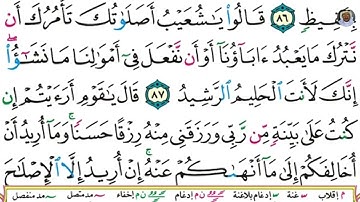 بِحَفِيظٍ ٨٦ قَالُوا۟ يَـٰشُعَيْبُ أَصَلَوٰتُكَ تَأْمُرُكَ أَن
نَّتْرُكَ مَا يَعْبُدُ ءَابَآؤُنَآ أَوْ أَن نَّفْعَلَ فِىٓ أَمْوَٰلِنَا مَا نَشَـٰٓؤُا۟ ۖ
إِنَّكَ لَأَنتَ ٱلْحَلِيمُ ٱلرَّشِيدُ ٨٧ قَالَ يَـٰقَوْمِ أَرَءَيْتُمْ إِن
كُنتُ عَلَىٰ بَيِّنَةٍ مِّن رَّبِّى وَرَزَقَنِى مِنْهُ رِزْقًا حَسَنًا ۚ وَمَآ أُرِيدُ أَنْ
أُخَالِفَكُمْ إِلَىٰ مَآ أَنْهَىٰكُمْ عَنْهُ ۚ إِنْ أُرِيدُ إِلَّا ٱلْإِصْلَـٰحَ
م إقلاب س غنة س إدغام بلاغنة ن م إدغام ن م إخفاء مد متصل مد منفصل